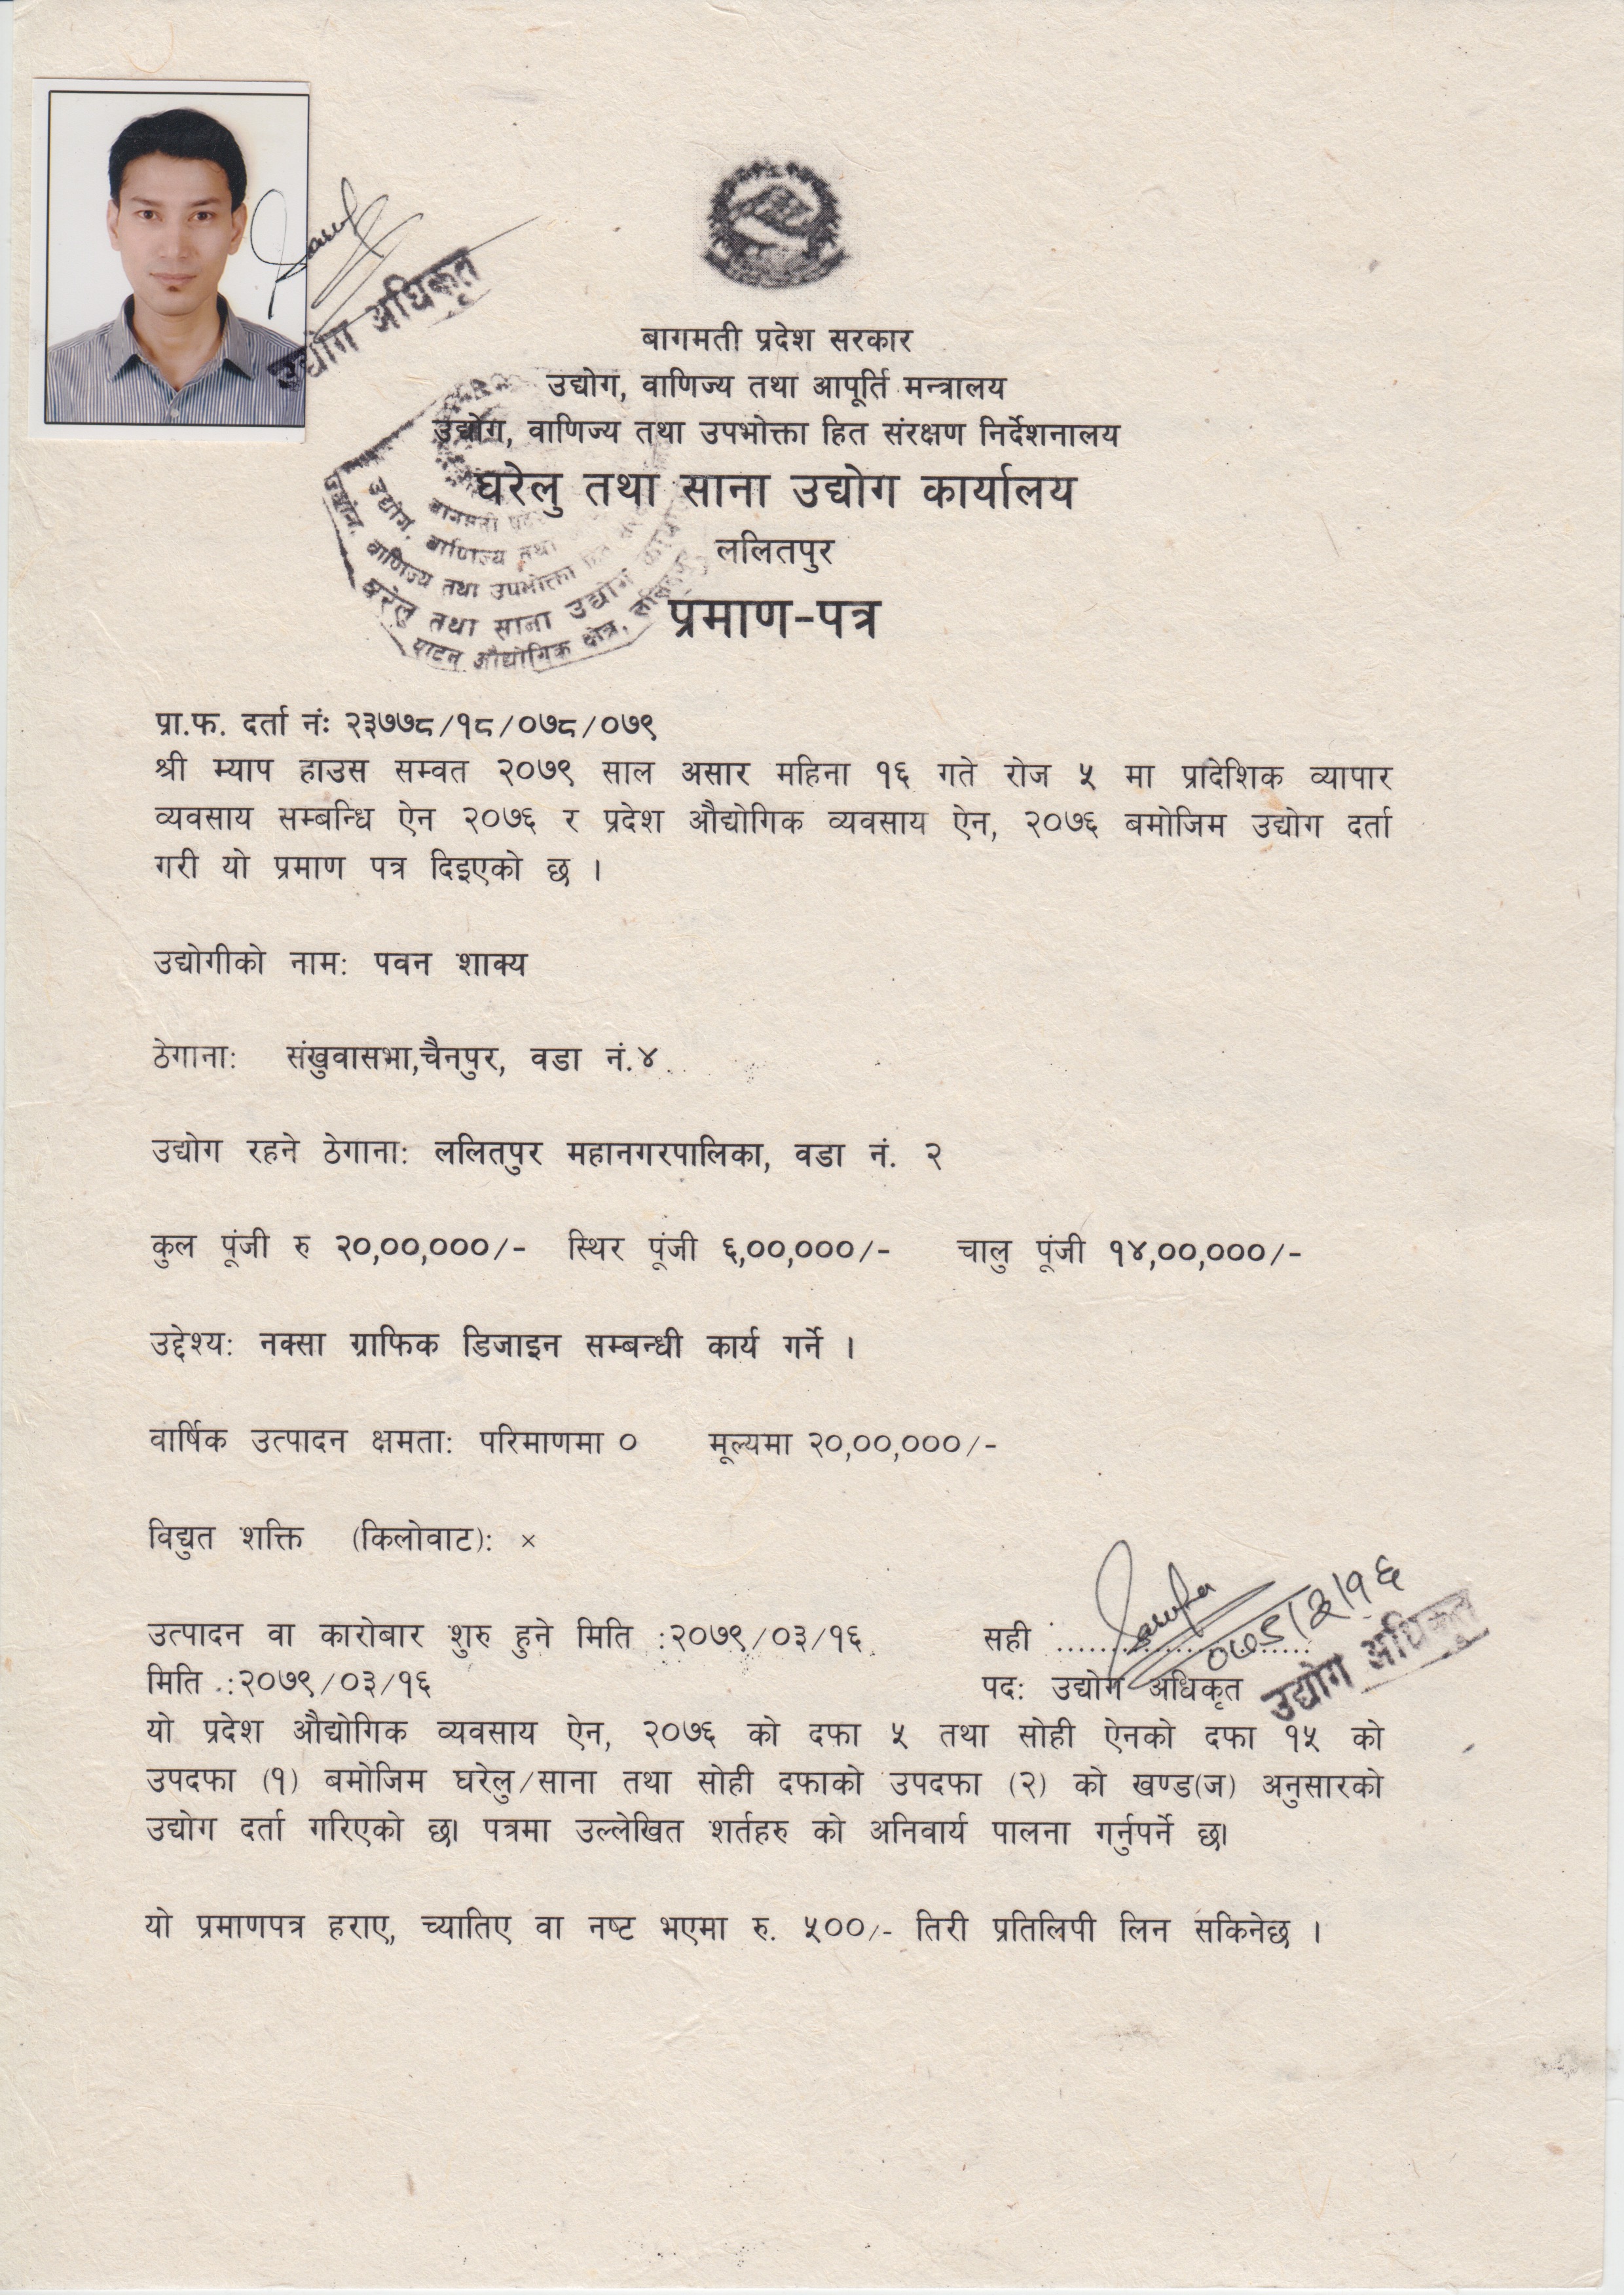 उद्योग अधिकृत
बागमती प्रदेश सरकार
उद्योग, वाणिज्य तथा आपूर्ति मन्त्रालय
उद्योग, वाणिज्य तथा उपभोक्ता हित संरक्षण निर्देशनालय
घरेलु तथा साना उद्योग कार्यालय
ललितपुर
प्रमाण-पत्र
बागमती
उद्योग, वाणिज्य तथा
उद्योग, वाणिज्य तथा उपभोक्ता हित
घरेलु तथा साना उद्योग
पाटन औद्योगिक क्षेत्र,
प्रा.फ. दर्ता नंः २३७७८/१८/०७८/०७९
श्री म्याप हाउस सम्वत २०७९ साल असार महिना १६ गते रोज ५ मा प्रादेशिक व्यापार
व्यवसाय सम्बन्धि ऐन २०७६ र प्रदेश औद्योगिक व्यवसाय ऐन, २०७६ बमोजिम उद्योग दर्ता
गरी यो प्रमाण पत्र दिइएको छ ।
उद्योगीको नाम: पवन शाक्य
ठेगाना: संखुवासभा,चैनपुर, वडा नं.४
उद्योग रहने ठेगाना: ललितपुर महानगरपालिका, वडा नं. २
कुल पूंजी रु २०,००,०००/- स्थिर पूंजी ६,००,०००/- चालु पूंजी १४,००,०००/-
उद्देश्य: नक्सा ग्राफिक डिजाइन सम्बन्धी कार्य गर्ने ।
वार्षिक उत्पादन क्षमता: परिमाणमा ० मूल्यमा २०,००,०००/-
विद्युत शक्ति (किलोवाट): ×
उत्पादन वा कारोबार शुरु हुने मिति :२०७९/०३/१६ सही ........................
०७९/३/१६
मिति .:२०७९/०३/१६ पद: उद्योग अधिकृत
उद्योग अधिकृत
यो प्रदेश औद्योगिक व्यवसाय ऐन, २०७६ को दफा ५ तथा सोही ऐनको दफा १५ को
उपदफा (१) बमोजिम घरेलु/साना तथा सोही दफाको उपदफा (२) को खण्ड(ज) अनुसारको
उद्योग दर्ता गरिएको छ। पत्रमा उल्लेखित शर्तहरु को अनिवार्य पालना गर्नुपर्ने छ।
यो प्रमाणपत्र हराए, च्यातिए वा नष्ट भएमा रु. ५००/- तिरी प्रतिलिपी लिन सकिनेछ ।